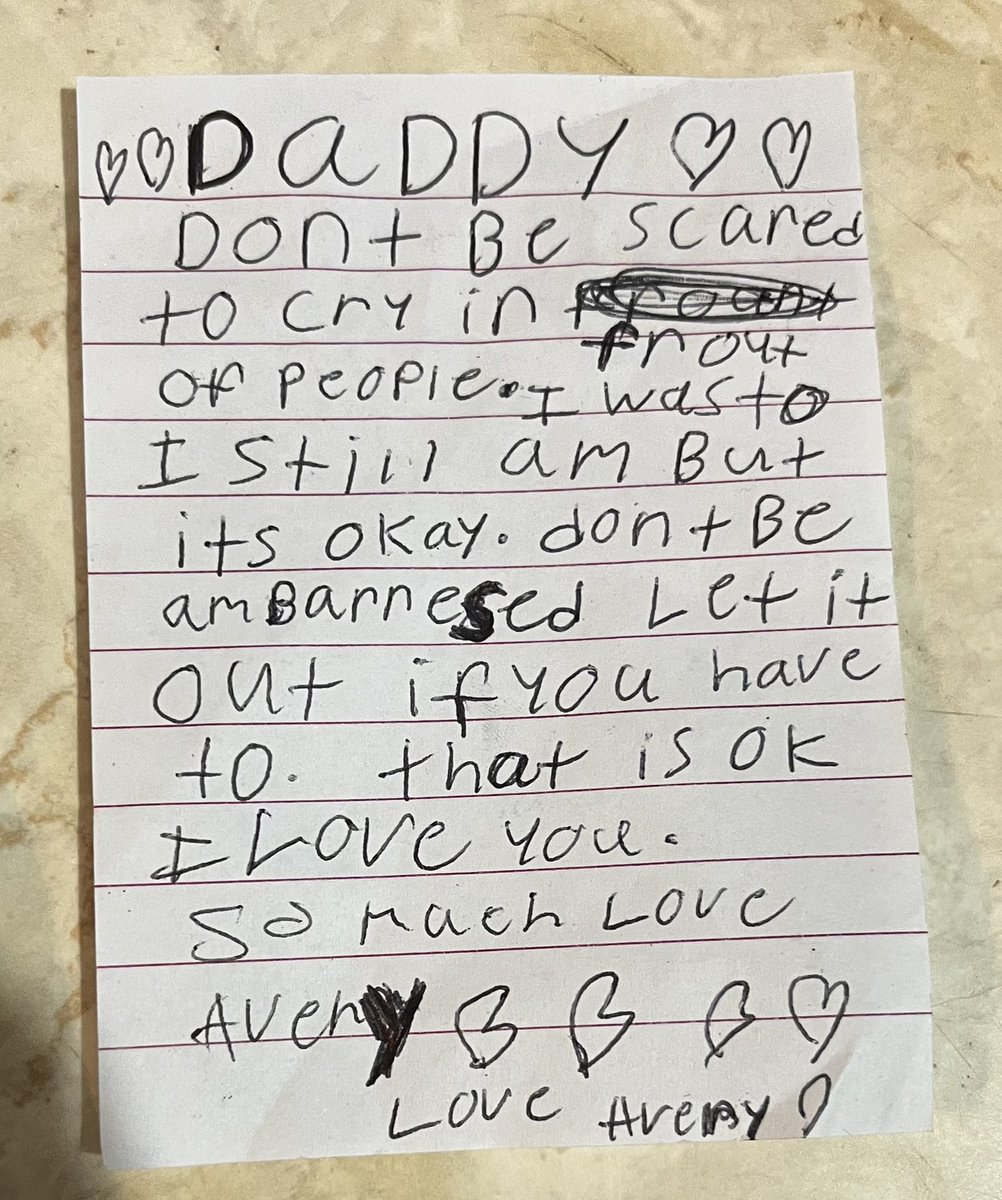 DaDDy
DOnt Be scared
to cry in
frout
Of PeoPle. I was to
I Still am But
its okay. dont Be
amBarresed Let it
Out if you have
to. that is ok
I Love you.
So Much Love
Avery
Love Avery